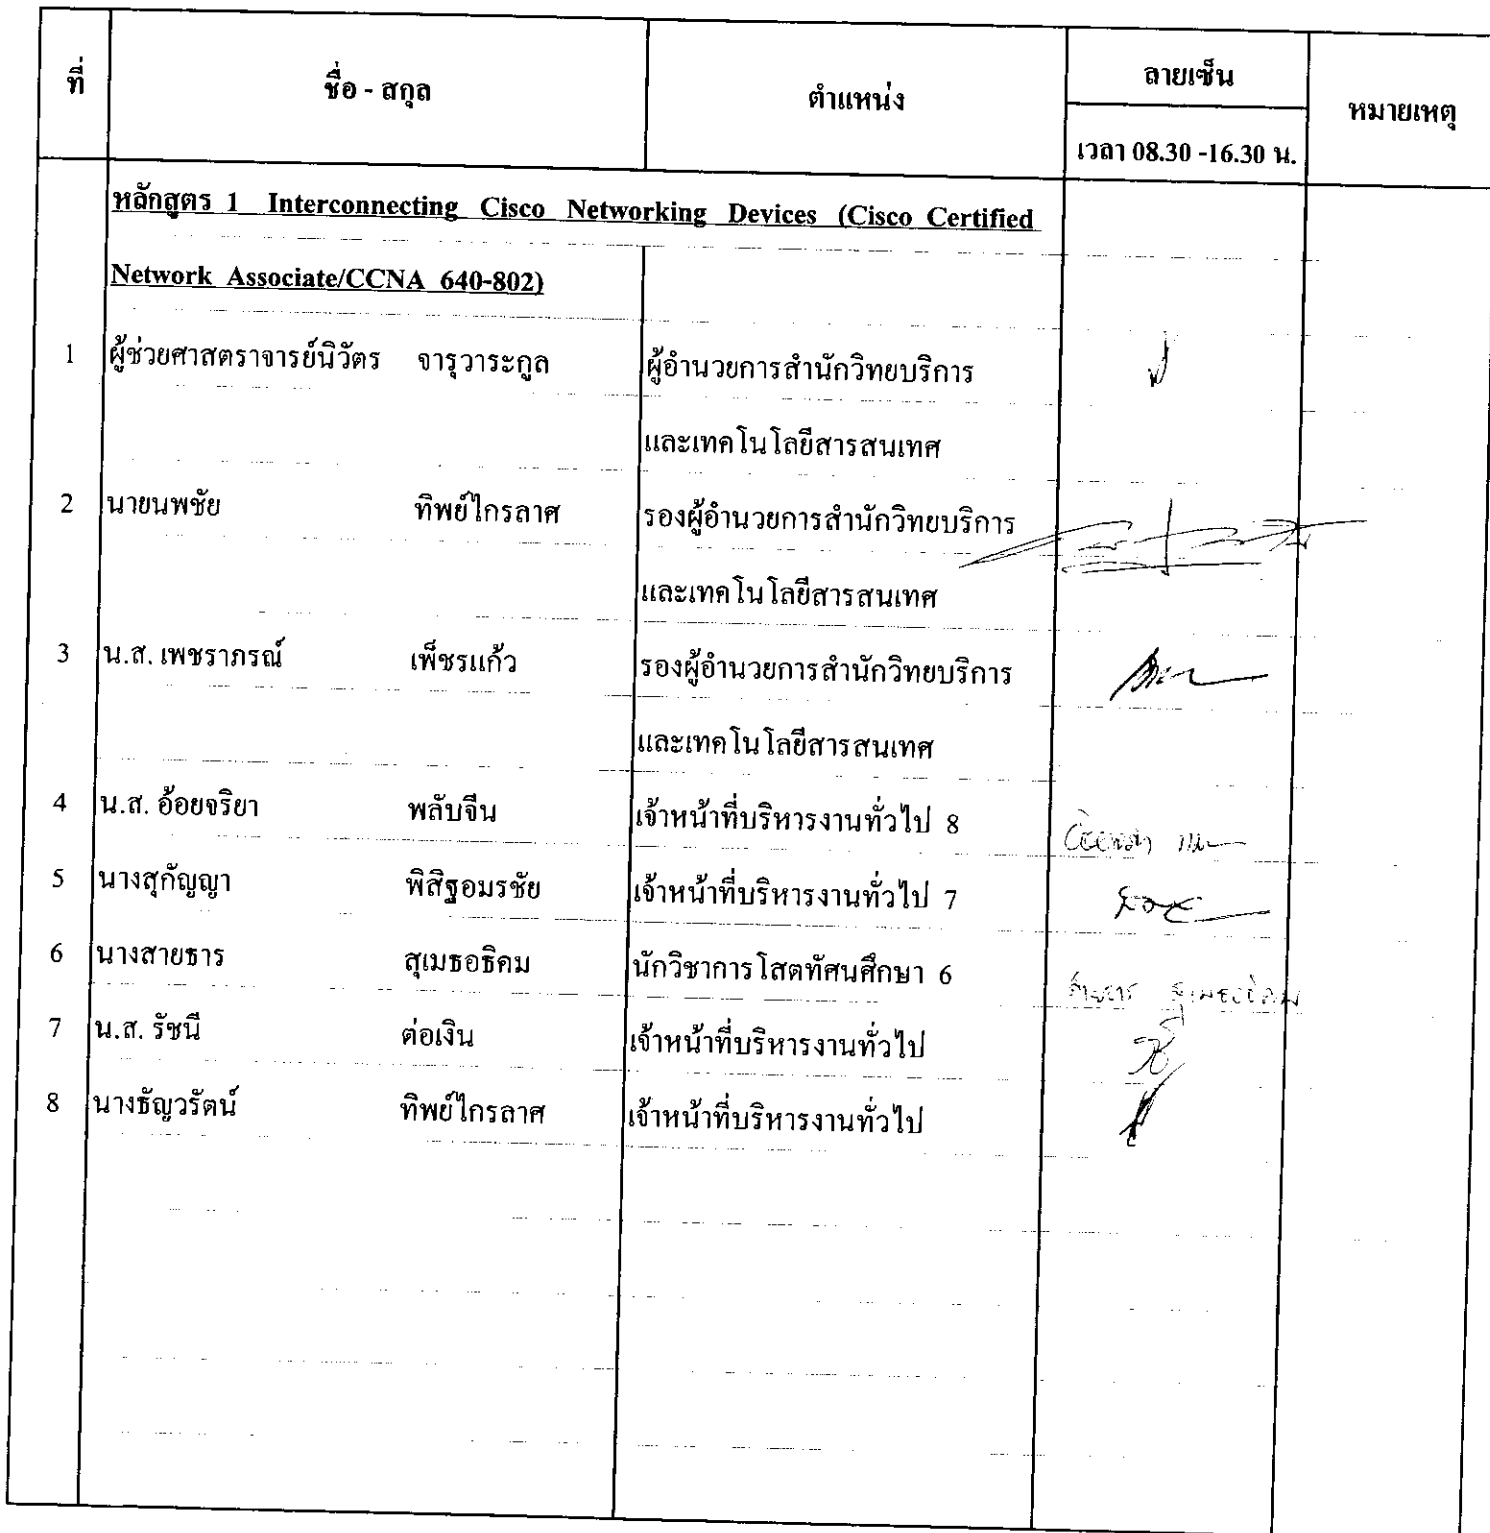 ที่ ชื่อ - สกุล ตำแหน่ง ลายเซ็น หมายเหตุ
เวลา 08.30 -16.30 น.
หลักสูตร 1 Interconnecting Cisco Networking Devices (Cisco Certified
Network Associate/CCNA 640-802)
1 ผู้ช่วยศาสตราจารย์นิวัตร จารุวาระกูล ผู้อำนวยการสำนักวิทยบริการ
และเทคโนโลยีสารสนเทศ
2 นายนพชัย ทิพย์ไกรลาศ รองผู้อำนวยการสำนักวิทยบริการ
และเทคโนโลยีสารสนเทศ
3 น.ส. เพชราภรณ์ เพ็ชรแก้ว รองผู้อำนวยการสำนักวิทยบริการ
และเทคโนโลยีสารสนเทศ
4 น.ส. อ้อยจริยา พลับจีน เจ้าหน้าที่บริหารงานทั่วไป 8
5 นางสุกัญญา พิสิฐอมรชัย เจ้าหน้าที่บริหารงานทั่วไป 7
6 นางสายธาร สุเมธอธิคม นักวิชาการโสตทัศนศึกษา 6 สายธาร สุเมธอธิคม
7 น.ส. รัชนี ต่อเงิน เจ้าหน้าที่บริหารงานทั่วไป
8 นางธัญวรัตน์ ทิพย์ไกรลาศ เจ้าหน้าที่บริหารงานทั่วไป